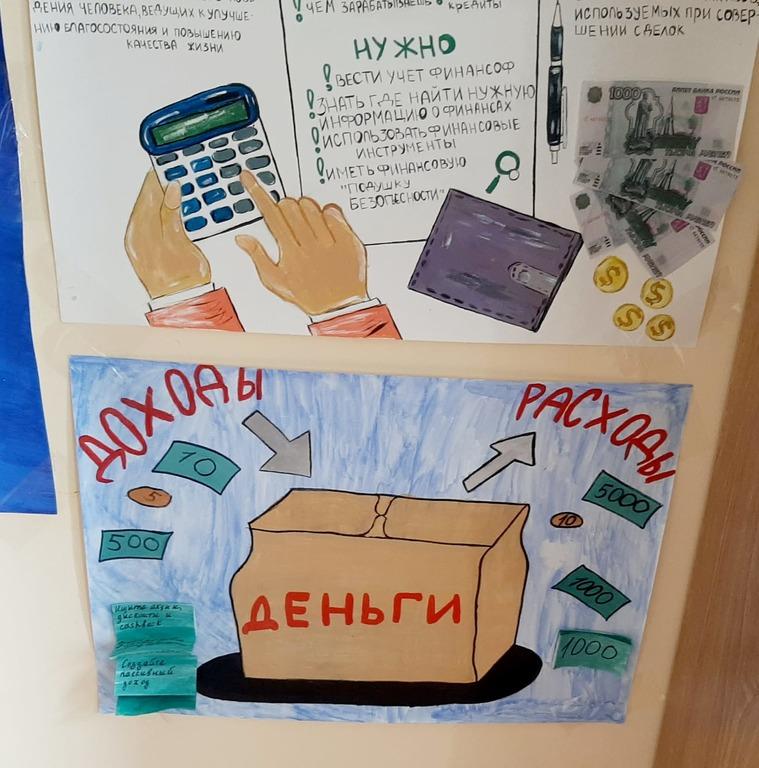 ДЕНИЯ ЧЕЛОВЕКА, ВЕДУЩИХ К УЛУЧШЕ-
НИЮ БЛАГОСОСТОЯНИЯ И ПОВЫШЕНИЮ
КАЧЕСТВА ЖИЗНИ
ЧЕМ ЗАРАБАТЫВАЕШЬ
КРЕДИТЫ
НУЖНО
! ВЕСТИ УЧЕТ ФИНАНСОФ
! ЗНАТЬ ГДЕ НАЙТИ НУЖНУЮ
ИНФОРМАЦИЮ О ФИНАНСАХ
! ИСПОЛЬЗОВАТЬ ФИНАНСОВЫЕ
ИНСТРУМЕНТЫ
! ИМЕТЬ ФИНАНСОВУЮ
"ПОДУШКУ
БЕЗОПАСНОСТИ"
ИСПОЛЬЗУЕМЫХ ПРИ СОВЕР-
ШЕНИИ СДЕЛОК
1000 БИЛЕТ БАНКА РОССИИ
$
$
$
$
ДОХОДЫ
РАСХОДЫ
10
5
500
5000
10
1000
1000
ДЕНЬГИ
Ищите акции,
дисконты и
cashback
Создайте
пассивный
доход